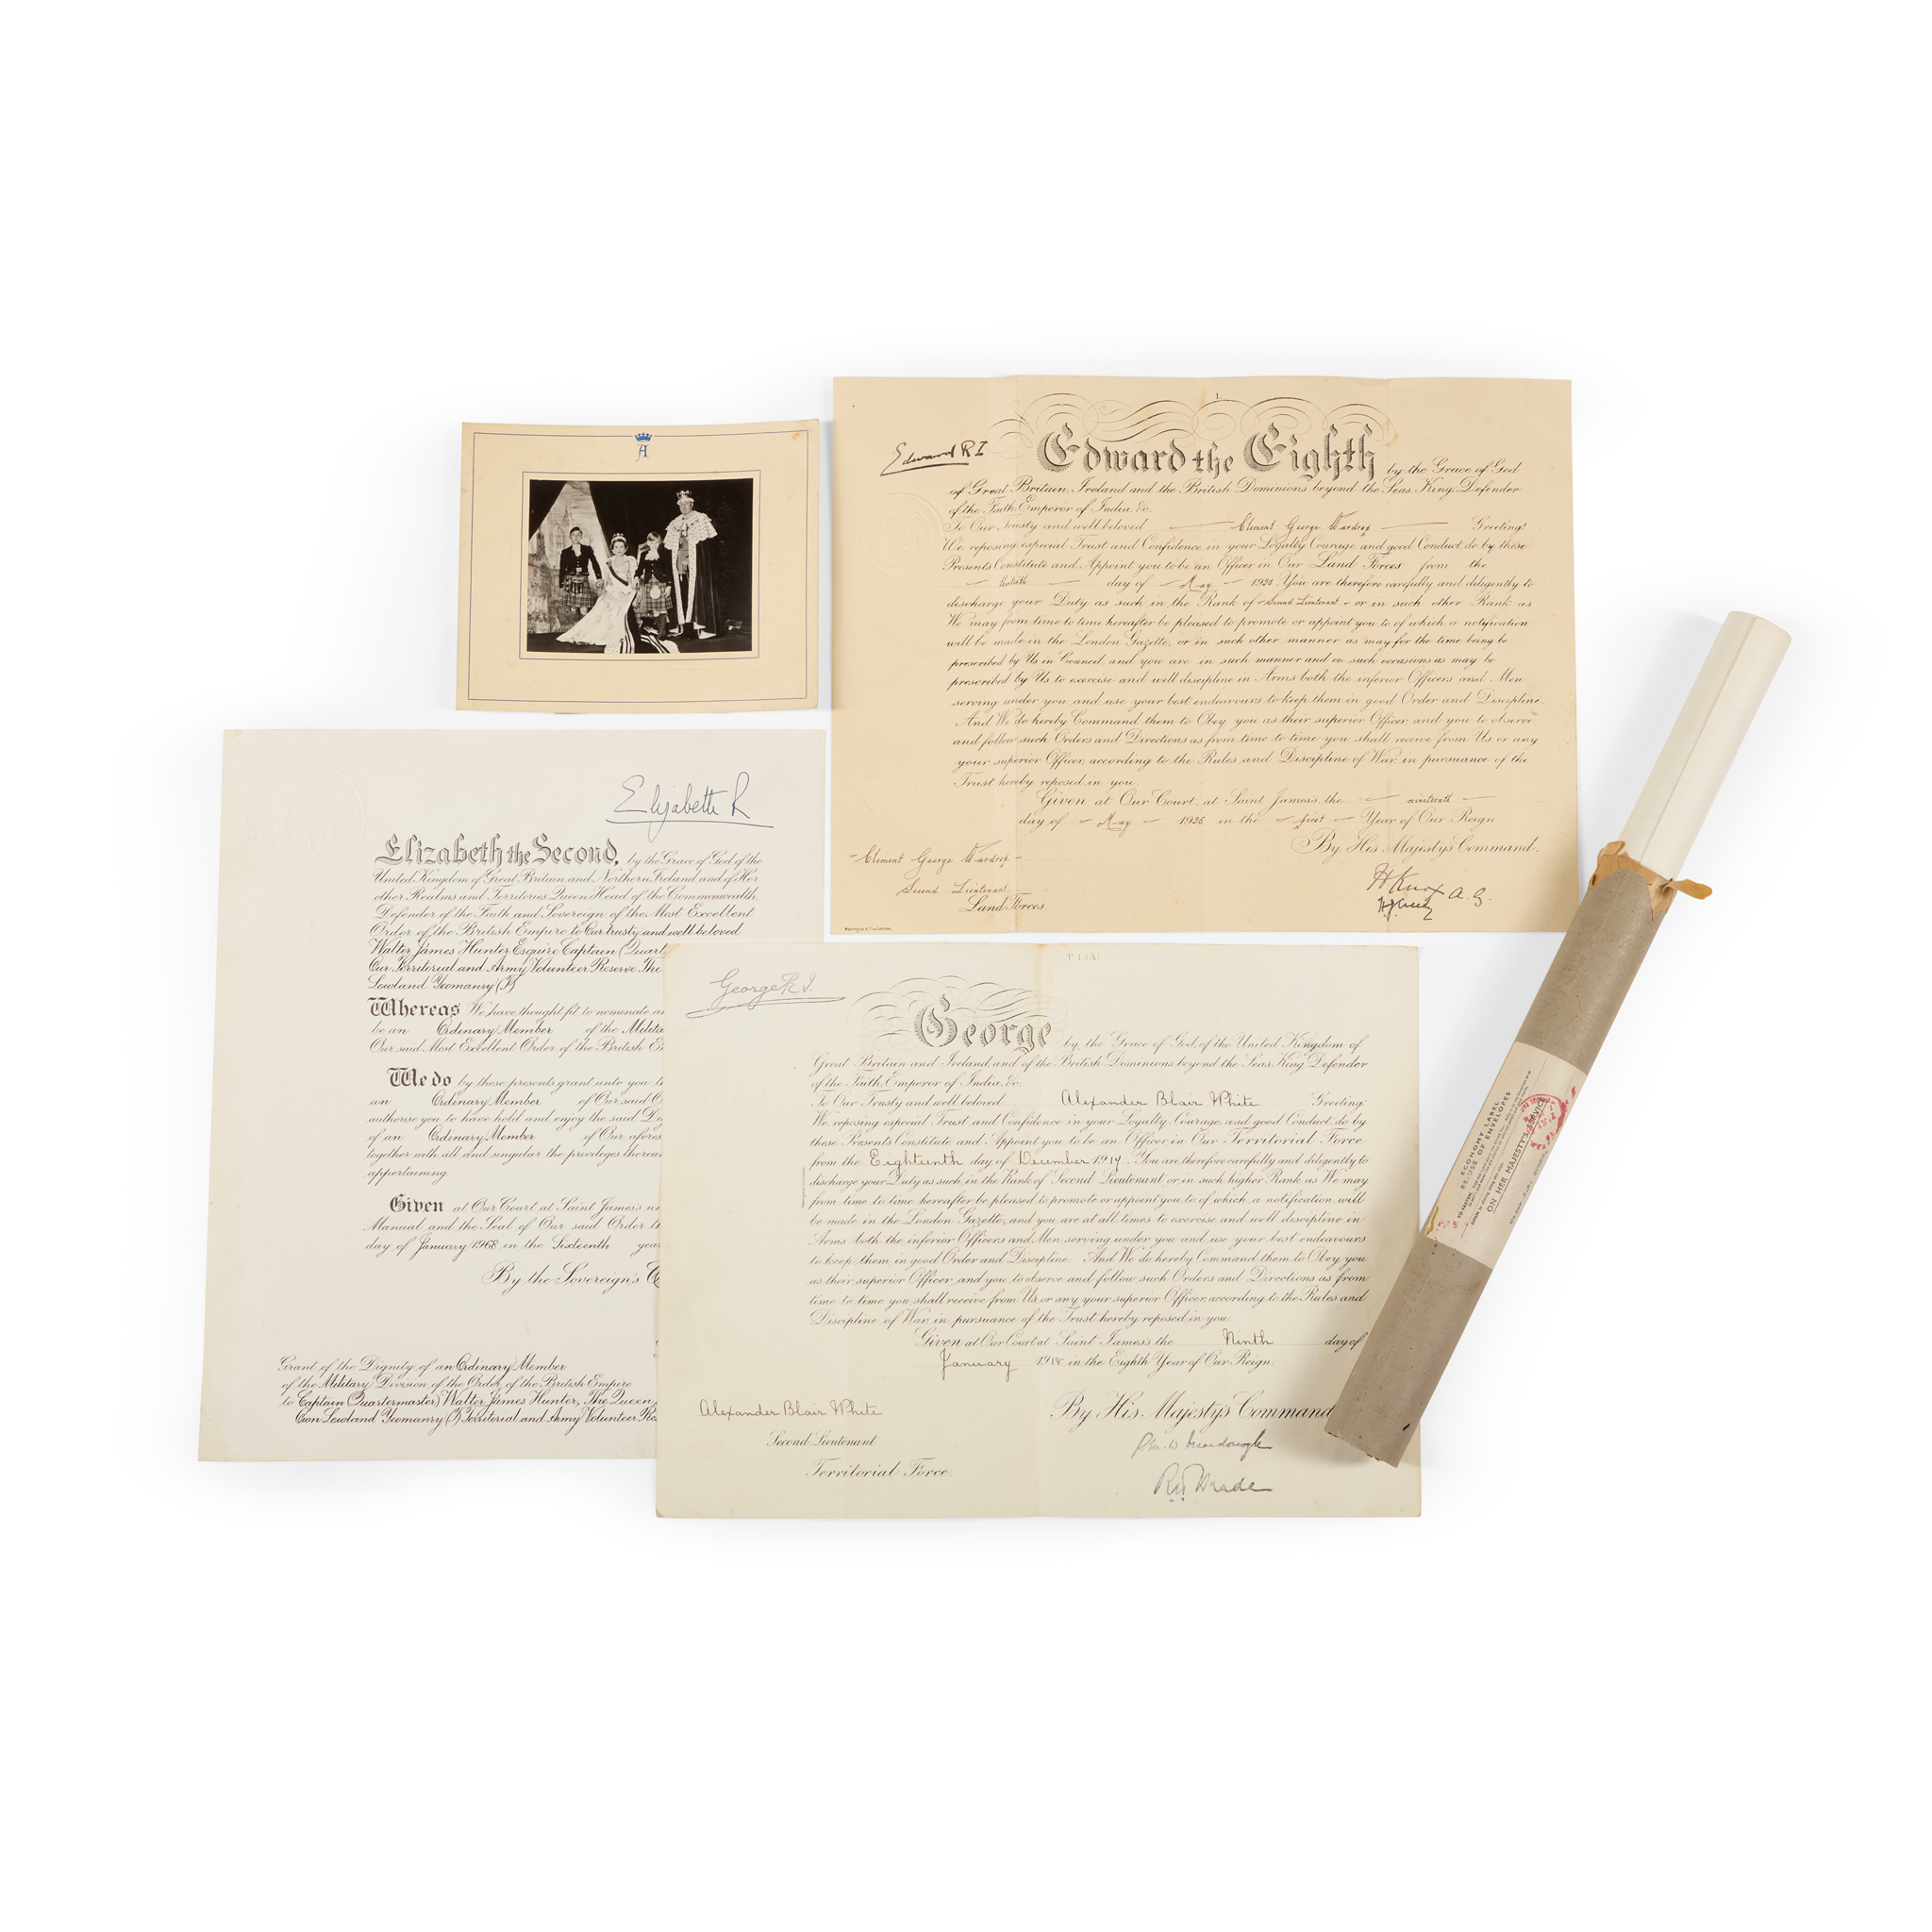 A
Edward R I
Edward the Eighth by the Grace of God
of Great Britain, Ireland and the British Dominions beyond the Seas, King, Defender
of the Faith, Emperor of India, &c.
To Our Trusty and well beloved Clement George Wardrop Greeting!
We, reposing especial Trust and Confidence in your Loyalty, Courage, and good Conduct, do by these
Presents Constitute and Appoint you to be an Officer in Our Land Forces from the
day of May 1936. You are therefore carefully and diligently to
discharge your Duty as such in the Rank of Second Lieutenant or in such other Rank as
We may from time to time hereafter be pleased to promote or appoint you to, of which a notification
will be made in the London Gazette, or in such other manner as may for the time being be
prescribed by Us in Council, and you are in such manner and on such occasions as may be
prescribed by Us to exercise and well discipline in Arms both the inferior Officers and Men
serving under you and use your best endeavours to keep them in good Order and Discipline.
And We do hereby Command them to Obey you as their superior Officer, and you to observe
and follow such Orders and Directions as from time to time you shall receive from Us, or any
your superior Officer, according to the Rules and Discipline of War, in pursuance of the
Trust hereby reposed in you.
Given at Our Court, at Saint James's, the nineteenth
day of May 1936 in the first Year of Our Reign
By His Majesty's Command.
Clement George Wardrop
Second Lieutenant
Land Forces.
H Knox A.G.
Elizabeth R
Elizabeth the Second, by the Grace of God of the
United Kingdom of Great Britain and Northern Ireland and of Her
other Realms and Territories Queen, Head of the Commonwealth,
Defender of the Faith and Sovereign of the Most Excellent
Order of the British Empire to Our trusty and well beloved
Walter James Hunter Esquire Captain (Quart
Our Territorial and Army Volunteer Reserve The
Lowland Yeomanry (T)
Whereas We have thought fit to nominate an
be an Ordinary Member of the Milita
Our said Most Excellent Order of the British E
We do by these presents grant unto you t
an Ordinary Member of Our said O
authorise you to have hold and enjoy the said D
of an Ordinary Member of Our afores
together with all and singular the privileges thereun
appertaining
Given at Our Court at Saint James's un
Manual and the Seal of Our said Order th
day of January 1968 in the Sixteenth year
By the Sovereign's C
Grant of the Dignity of an Ordinary Member
of the Military Division of the Order of the British Empire
to Captain (Quartermaster) Walter James Hunter, The Queen
Own Lowland Yeomanry (T) Territorial and Army Volunteer Re
George R.I.
George by the Grace of God, of the United Kingdom of
Great Britain and Ireland and of the British Dominions beyond the Seas, King, Defender
of the Faith, Emperor of India, &c.
To Our Trusty and well beloved Alexander Blair White Greeting:
We, reposing especial Trust and Confidence in your Loyalty, Courage, and good Conduct, do by
these Presents Constitute and Appoint you to be an Officer in Our Territorial Force
from the Eighteenth day of December 1917. You are therefore carefully and diligently to
discharge your Duty as such in the Rank of Second Lieutenant or in such higher Rank as We may
from time to time hereafter be pleased to promote or appoint you to, of which a notification will
be made in the London Gazette, and you are at all times to exercise and well discipline in
Arms both the inferior Officers and Men serving under you and use your best endeavours
to keep them in good Order and Discipline. And We do hereby Command them to Obey you
as their superior Officer, and you to observe and follow such Orders and Directions as from
time to time you shall receive from Us, or any your superior Officer, according to the Rules and
Discipline of War, in pursuance of the Trust hereby reposed in you.
Given at Our Court at Saint James's, the Ninth day of
January 1918 in the Eighth Year of Our Reign.
By His Majesty's Command
Alexander Blair White
Second Lieutenant
Territorial Force.
ECONOMY LABEL
RE-USE OF ENVELOPES
ON HER MAJESTY'S SERVICE